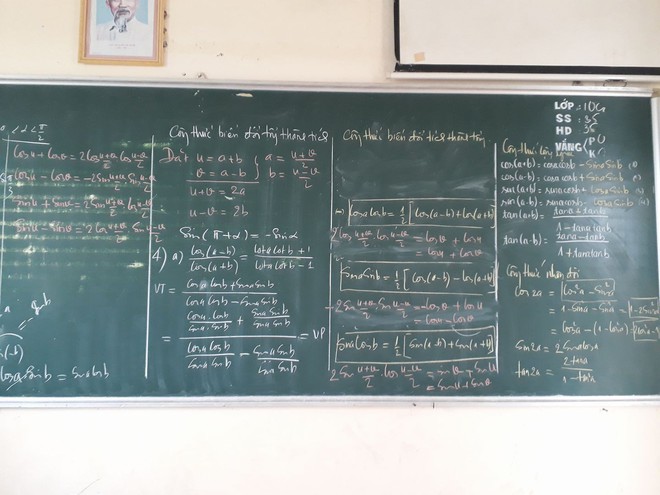 0 < α < π/2
cosu + cosv = 2cos u+v/2 cos u-v/2
cosu - cosv = -2sin u+v/2 sin u-v/2
sinu + sinv = 2sin u+v/2 cos u-v/2
sinu - sinv = 2cos u+v/2 sin u-v/2
= sina cosb
Công thức biến đổi tổng thành tích
Đặt u = a+b
v = a-b
u+v = 2a
u-v = 2b
a = u+v/2
b = u-v/2
sin(π+α) = -sinα
4) a) cos(a-b)/cos(a+b) = cota cotb + 1/cota cotb - 1
VT = cosa cosb + sina sinb/cosa cosb - sina sinb
= cosa cosb/sina sinb + sina sinb/sina sinb / cosa cosb/sina sinb - sina sinb/sina sinb = VP
Công thức biến đổi tích thành tổng
cosa cosb = 1/2 [cos(a-b) + cos(a+b)]
2cos u+v/2 cos u-v/2 = cosv + cosu
= cosu + cosv
sina sinb = 1/2 [cos(a-b) - cos(a+b)]
-2sin u+v/2 sin u-v/2 = -cosv + cosu
= cosu - cosv
sina cosb = 1/2 [sin(a-b) + sin(a+b)]
2sin u+v/2 . cos u-v/2 = sinv + sinu
= sinu + sinv
LỚP = 10G
SS = 35
HD
VẮNG
Công thức cộng
cos(a+b) = cosa cosb - sina sinb
cos(a-b) = cosa cosb + sina sinb
sin(a+b) = sina cosb + cosa sinb
sin(a-b) = sina cosb - cosa sinb
tan(a+b) = tana + tanb/1 - tana tanb
tan(a-b) = tana - tanb/1 + tana tanb
Công thức nhân đôi
cos2a = cos²a - sin²a
= 1 - sin²a - sin²a = 1 - 2sin²a
= cos²a - (1 - cos²a) = 2cos²a - 1
sin2a = 2sina cosa
tan2a = 2tana/1 - tan²a